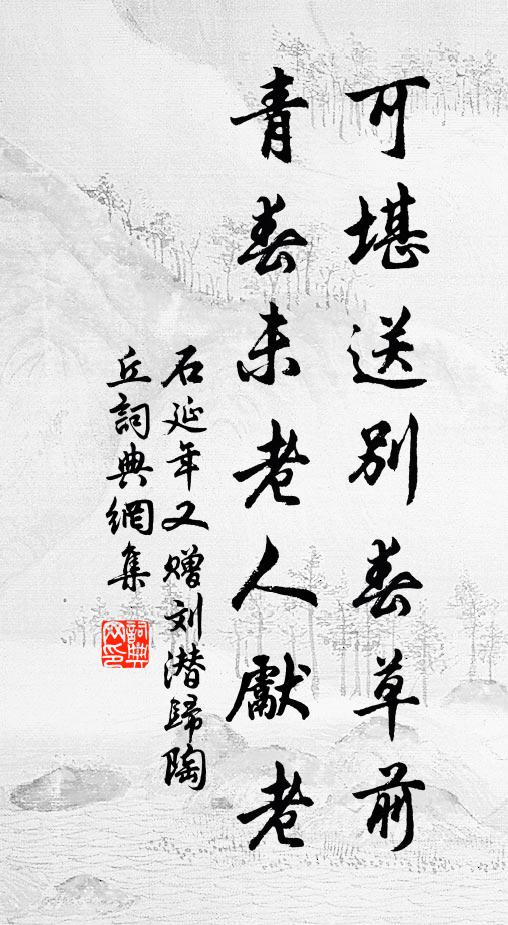 可堪送别春草前
青春未老人獻老
石延年又赠刘潜歸陶
丘詞典網集
詞典
网印